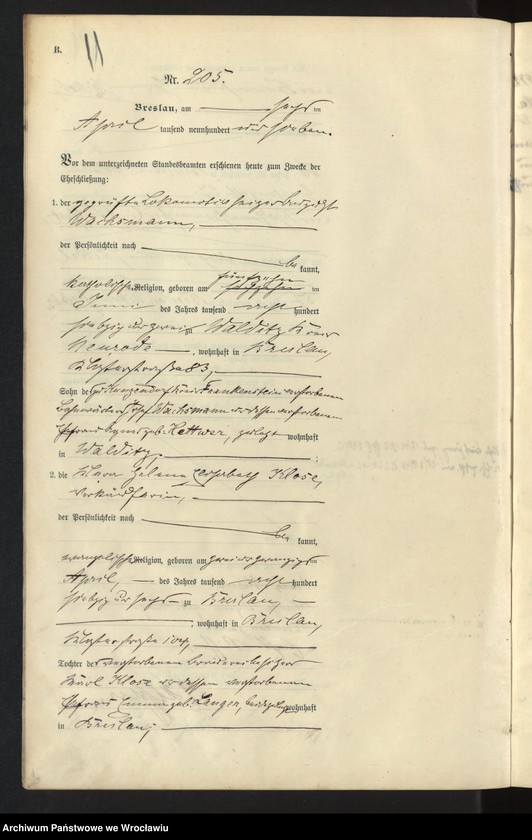 B.
11
Nr. 205.
Breslau, am sechs ten
April tausend neunhundert und sieben.
Vor dem unterzeichneten Standesbeamten erschienen heute zum Zwecke der
Eheschließung:
1. der geprüfte Lokomotivheizer
Wachsmann,
der Persönlichkeit nach
be kannt,
katholischer Religion, geboren am fünfzehn ten
Juni des Jahres tausend acht hundert
siebzig und zwei zu Walditz Kreis
Neurode, wohnhaft in Breslau,
Klosterstraße 83,
Sohn des zu Kunzendorf Kreis Frankenstein verstorbenen
Josef Wachsmann und dessen verstorbenen
Ehefrau geb. Hettwer, zuletzt wohnhaft
in Walditz;
2. die Klara Helene Elisabeth Klose,
Verkäuferin,
der Persönlichkeit nach
be kannt,
evangelischer Religion, geboren am zwei und zwanzigsten
April, des Jahres tausend acht hundert
siebzig und sechs zu Breslau,
, wohnhaft in Breslau,
Klosterstraße 104,
Tochter des verstorbenen
Karl Klose und dessen verstorbenen
Ehefrau Emma geb. Langer, beide zuletzt wohnhaft
in Breslau;
Archiwum Państwowe we Wrocławiu